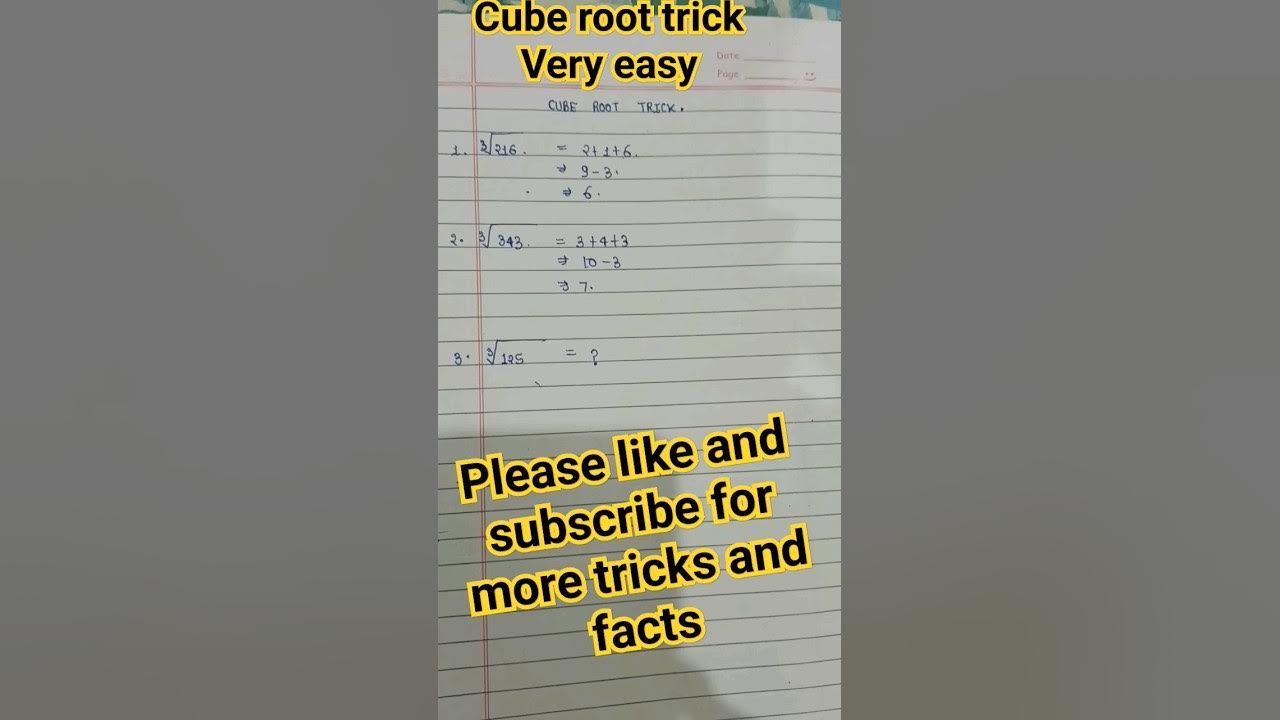 Cube root trick
Very easy
Date
Page
CUBE ROOT TRICK.
1. ∛216. = 2+1+6.
⇒ 9-3.
⇒ 6.
2. ∛343. = 3+4+3
⇒ 10-3
⇒ 7.
3. ∛125 = ?
Please like and
subscribe for
more tricks and
facts